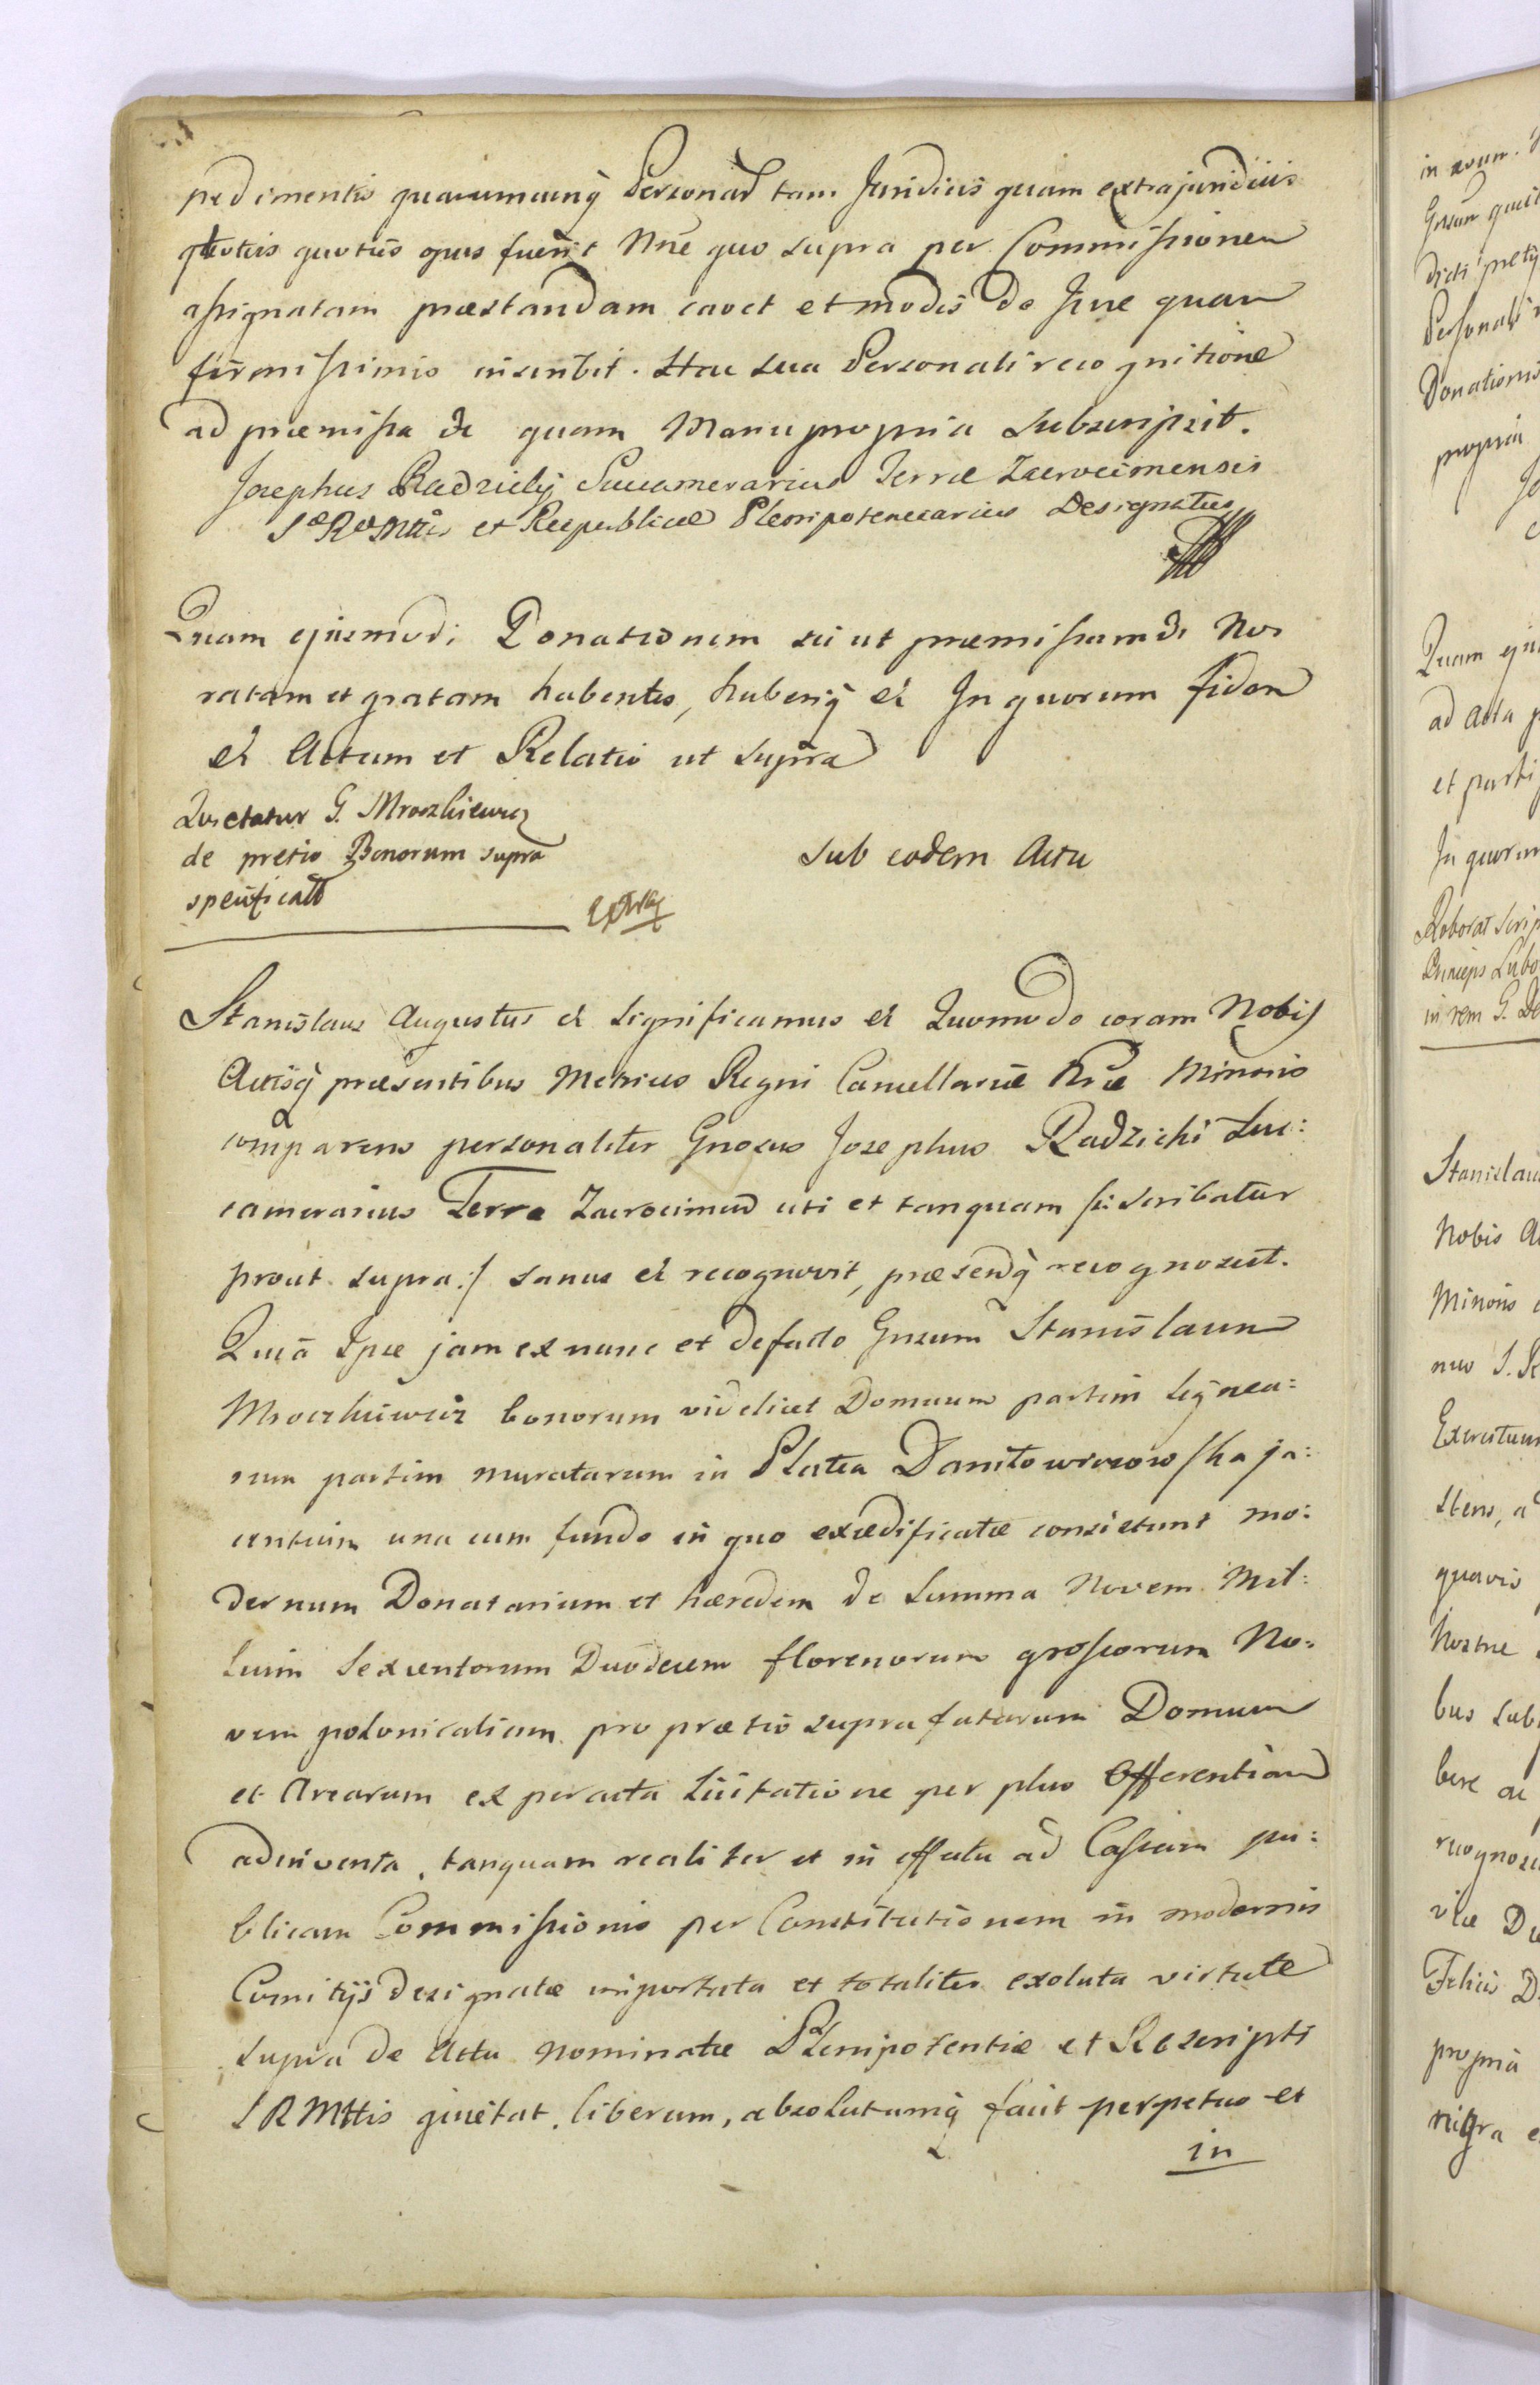 pedimentis quarumcunq̃ Personar̃ tam Juridicis quam extrajuridicis
quoties quoties opus fuerit Nñe quo supra per Commissionem
assignatam præstandam cavet et modis de Jure quam
firmissimis inscribit. Hac sua Personali recognitione
ad præmissa &c quam Manu propria Subscripsit.
Josephus Radzicky Succamerarius Terræ Zacrocimensis
S R Mttis et Reipublicæ Plenipotenciarius Designatus
Quam ejusmodi Donationem sic ut præmissum &c Nos
ratam et gratam habentes, haberiq̃ &c In quorum fidem
&c Actum et Relatio ut supra
Quietatur G. Mroczkiewicz
de pretio Bonorum supra
specificatt
Sub eodem Actu
Extrad
Stanislaus Augustus &c Significamus &c Quomodo coram Nobis
Actisq̃ præsentibus Metrices Regni Cancellariæ Rñi Minoris
comparens personaliter Gnosus Josephus Radzicki Suc:
camerarius Terræ Zacrocimen̄ uti et tanquam /: scribatur
prout supra :/ sanus &c recognovit, præsenq̃ recognoscit.
Quia Ipse jam ex nunc et defacto Gnsum Stanislaum
Mroczkiewicz bonorum videlicet Domuum partim lignea:
rum partim muratarum in Platea Daniłowiczowska ja:
centium una cum fundo in quo exædificatæ consistunt mo:
dernum Donatarium et hæredem de Summa Novem Mil:
lium Sexcentorum Duodecem florenorum grossorum No:
vem polonicalium pro prætio suprafatarum Domuum
et Arearum ex peracta Licitatione per plus Offerentiam
adinventa, tanquam realiter et in effectu ad Cassam pu:
blicam Commissionis per Constitutionem in modernis
Comitijs designatæ importata et totaliter exoluta virtute
supra de Actu nominatæ Plenipotentiæ et Rescripti
S R Mttis quietat, liberum, absolutumq̃ facit perpetuo et
in